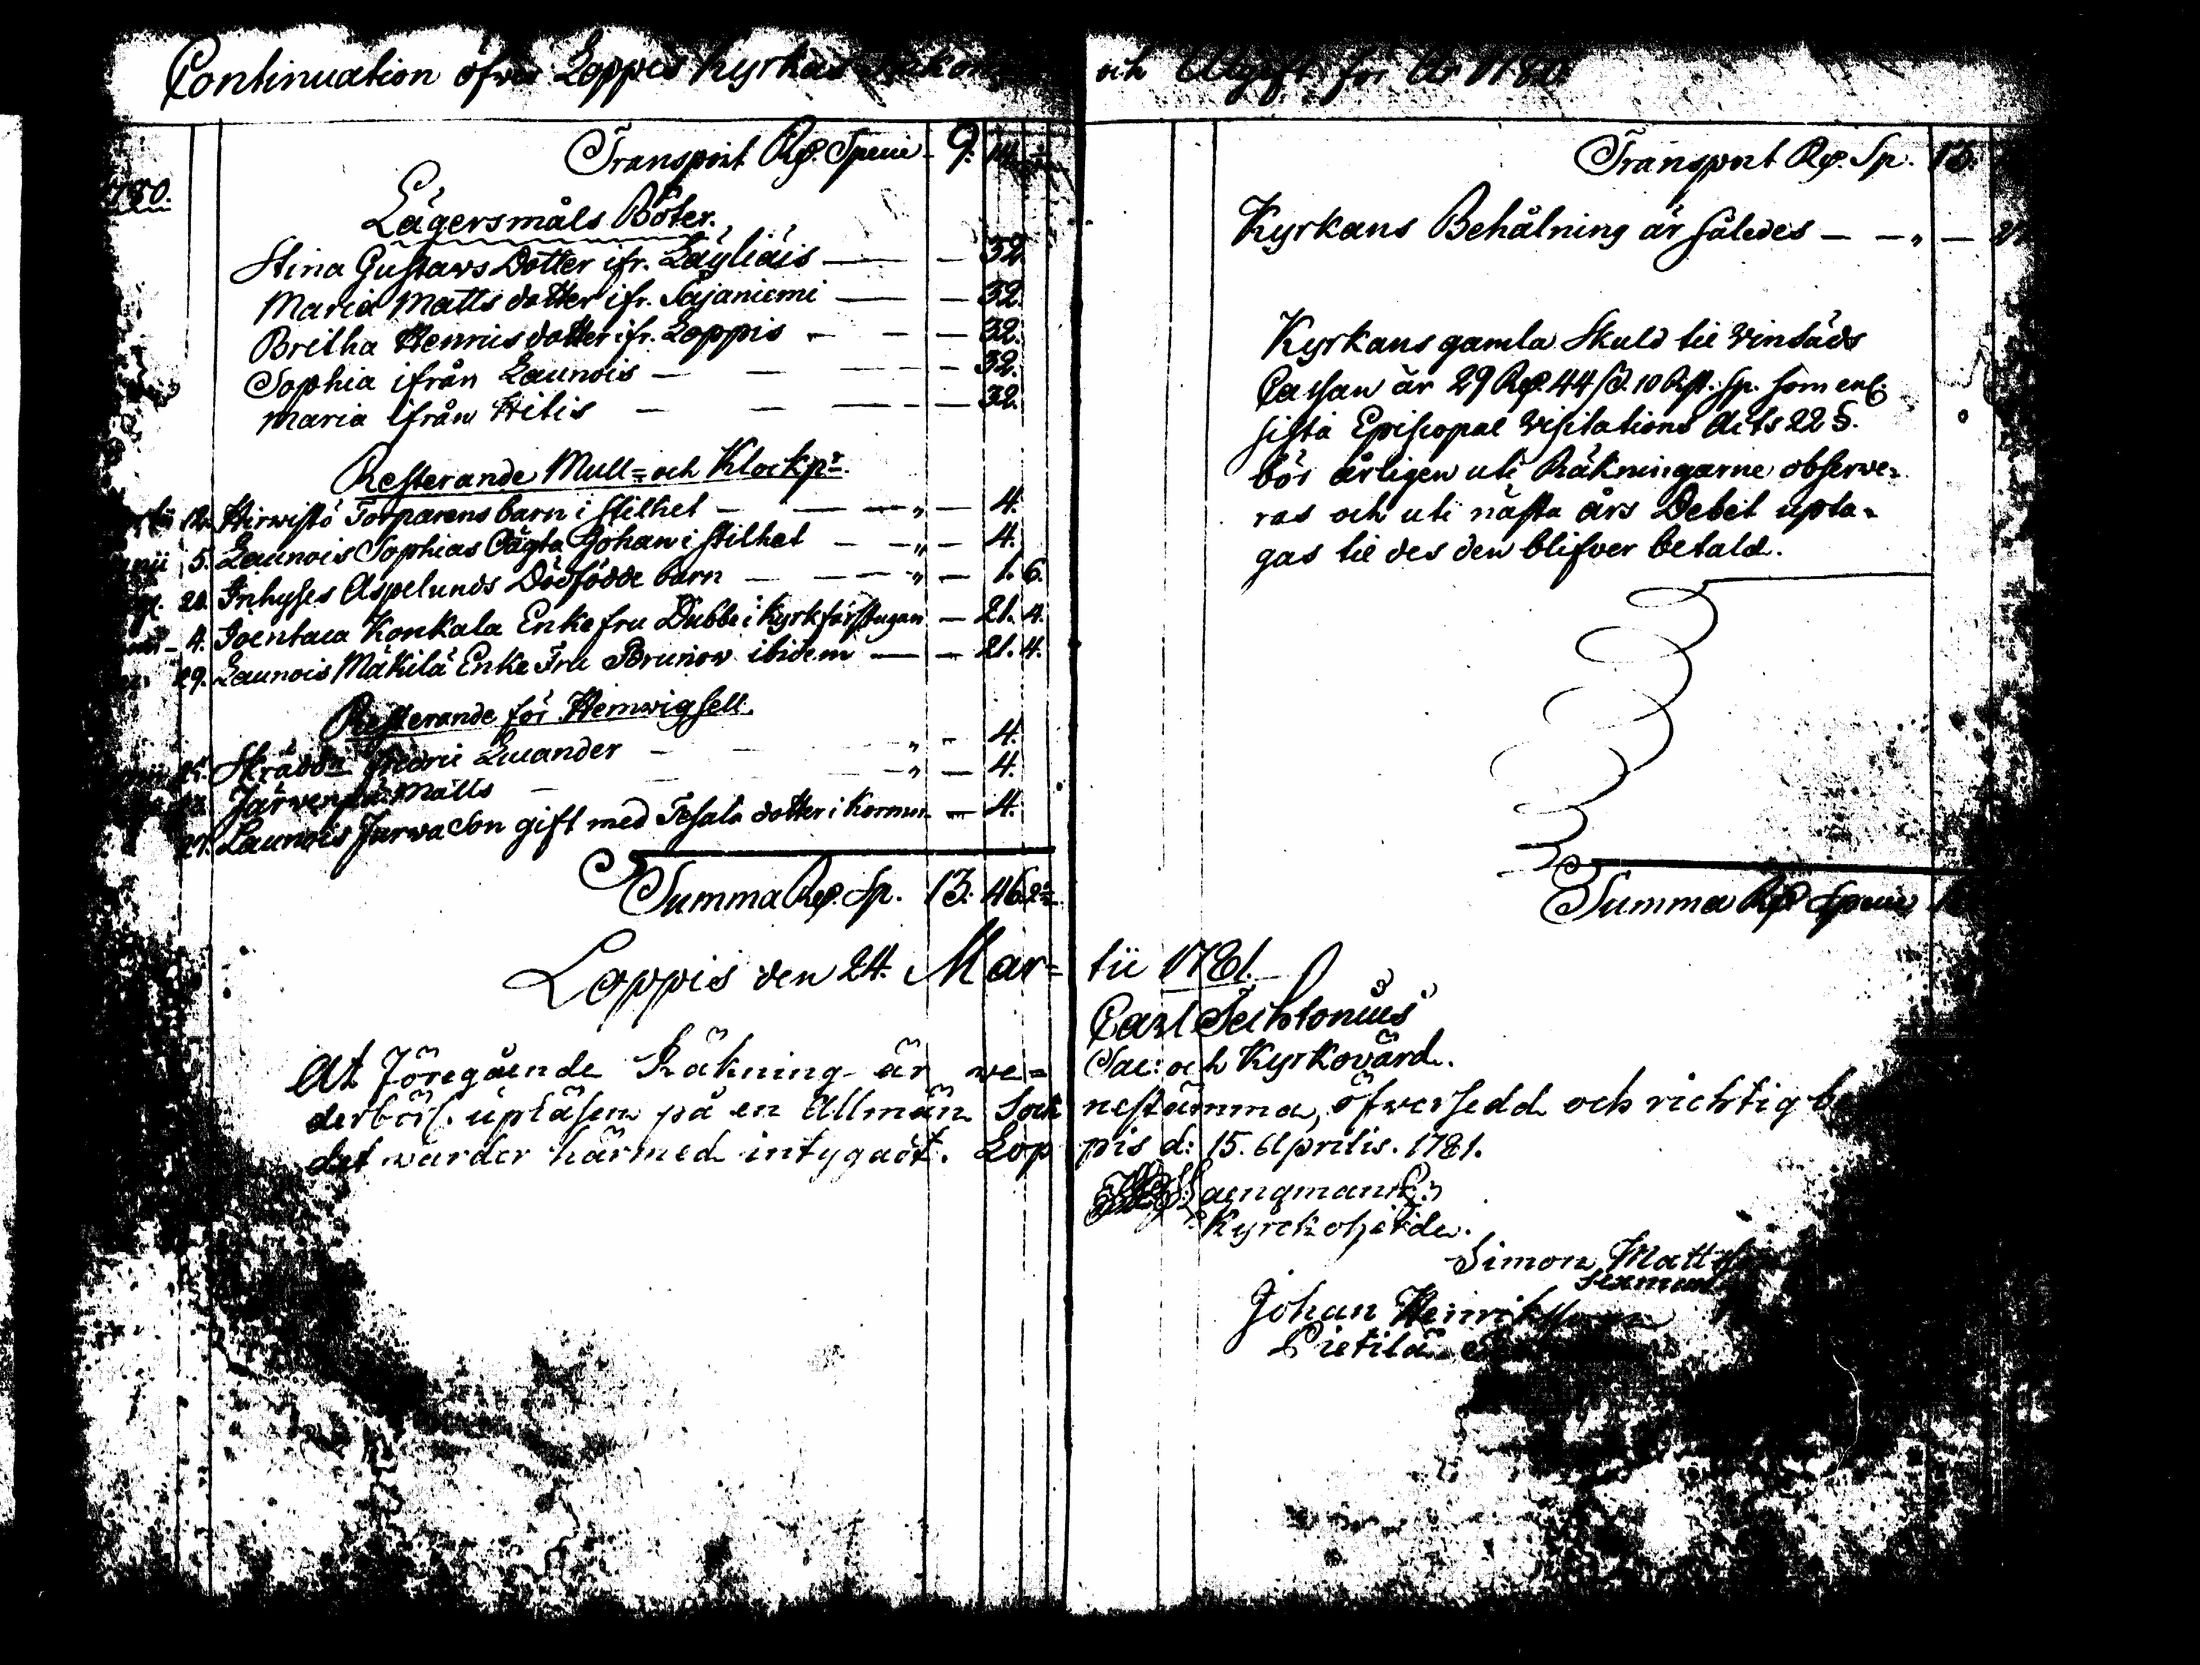 Continuation öfver Loppis Kyrkas
och Utgift för År 1780
Transport Rd. Specie 9. 14.
1780.
Lägersmåls Böter.
Stina Gustavs Dotter ifr. Läyliäis — — 32.
Maria Matts dotter ifr. Sajaniemi — — 32.
Britha Henrics dotter ifr. Loppis — — 32.
Sophia ifrån Launois — — — 32.
Maria ifrån Hilis — — — 32.
Resterande Mull- och Klockpr.
12. Hirwistö Torparens barn i stilhet — — " — 4.
5. Launois Sophias Oägta Johan i stilhet — — " — 4.
20. Inhyses Aspelunds Dödfödde barn — — " — 1. 6.
4. Joentaca Konkala Enkefru Dubbe i Kyrkförstugan — 21. 4.
29. Launois Mäkilä Enke Fru Brunow ibidem — — 21. 4.
Resterande för Hemwigsell.
25. Skrädd. Lucander — " — 4.
Järvenpää Matts — " — 4.
27. Launois Jarva Son gift med Tesala dotter i — 4.
Summa Rd. Sp. 13. 46.
Transport Rd. Sp. 13.
Kyrkans Behålning är således — — " —
Kyrkans gamla Skuld til Vinsäds
Cassan är 29 Rd. 44 s. 10 rst. Sp. som enl.
sista Episcopal Visitations Acts 22 §.
bör årligen uti Räkningarne observe-
ras och uti nästa års Debet upta-
gas til des den blifver betald.
Summa Rd Specie
Loppis den 24. Martii 1781.
Carl Techtonius
Sac: och Kyrkovärd.
At Föregående Räkning är we=
derbörl. upläsen på en Allmän Sock
nestämma, öfversedd och richtig
det warder härmed intygadt. Lop
pis d: 15. Aprilis. 1781.
Kyrckoh
Simon Matts
Sexman
Johan Henriksson
Pietilä